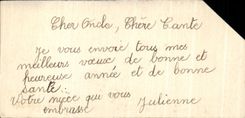 Cher Oncle, Chère Tante
Je vous envoie tous mes
meilleurs vœux de bonne et
heureuse année et de bonne
santé.
Votre nièce qui vous
embrasse Julienne